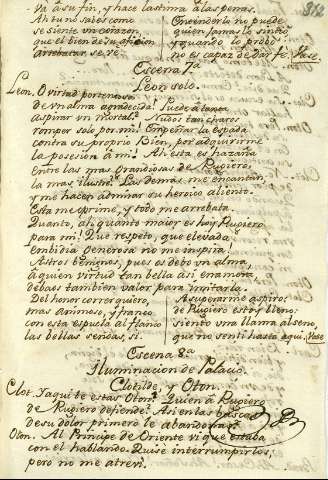 812
va a su fin, y hace lastima a las penas.
Ah tu no sabes como
se siente un corazon,
que el bien de su aficion
arrebatar se ve.
Concinderla no puede
quien jamas lo sintio
y quando lo probò
no es capaz de dar fe. Vase.
Escena 7ª
Leon solo.
Leon. O virtud portentosa
de un alma agradecida! Puede a tanto
aspirar un mortal? Nudos tan charos
romper solo por mi! Empeñar la espada
contra su proprio Bien, por adquirirme
la posesión à mi! Ah esta es hazaña
Entre las mas grandiosas de Rugiero,
la mas ilustre. Las demás me encantan,
y me hacen admirar su heroico aliento.
Esta me oprime, y todo me arrebata.
Quanto, ah quanto maior es hoy Rugiero
para mi! Qué respeto, que elevada
Embidia generosa no me inspira!
Astros benignos, pues es dabo un alma,
à quien virtud tan bella asi enamora,
debaos tambien valor para imitarla.
Del honor correr quiero,
mas animoso, y franco
con esta espuela al flanco
las bellas sendas, si.
A superarme aspiro:
de Rugiero estoy lleno:
siento una llama al seno,
que no senti hasta aqui. Vase
Escena 8ª
Iluminacion de Palacio.
Clotilde, y Oton.
Clot. Y aqui te estas Oton? Quien à Rugiero
de Rugiero defiende? Asi en las bascas
de su dolor primero le abandonas?
Oton. Al Principe de Oriente vi que estaba
con el hablando. Quise interrumpirlos,
pero no me atreví.